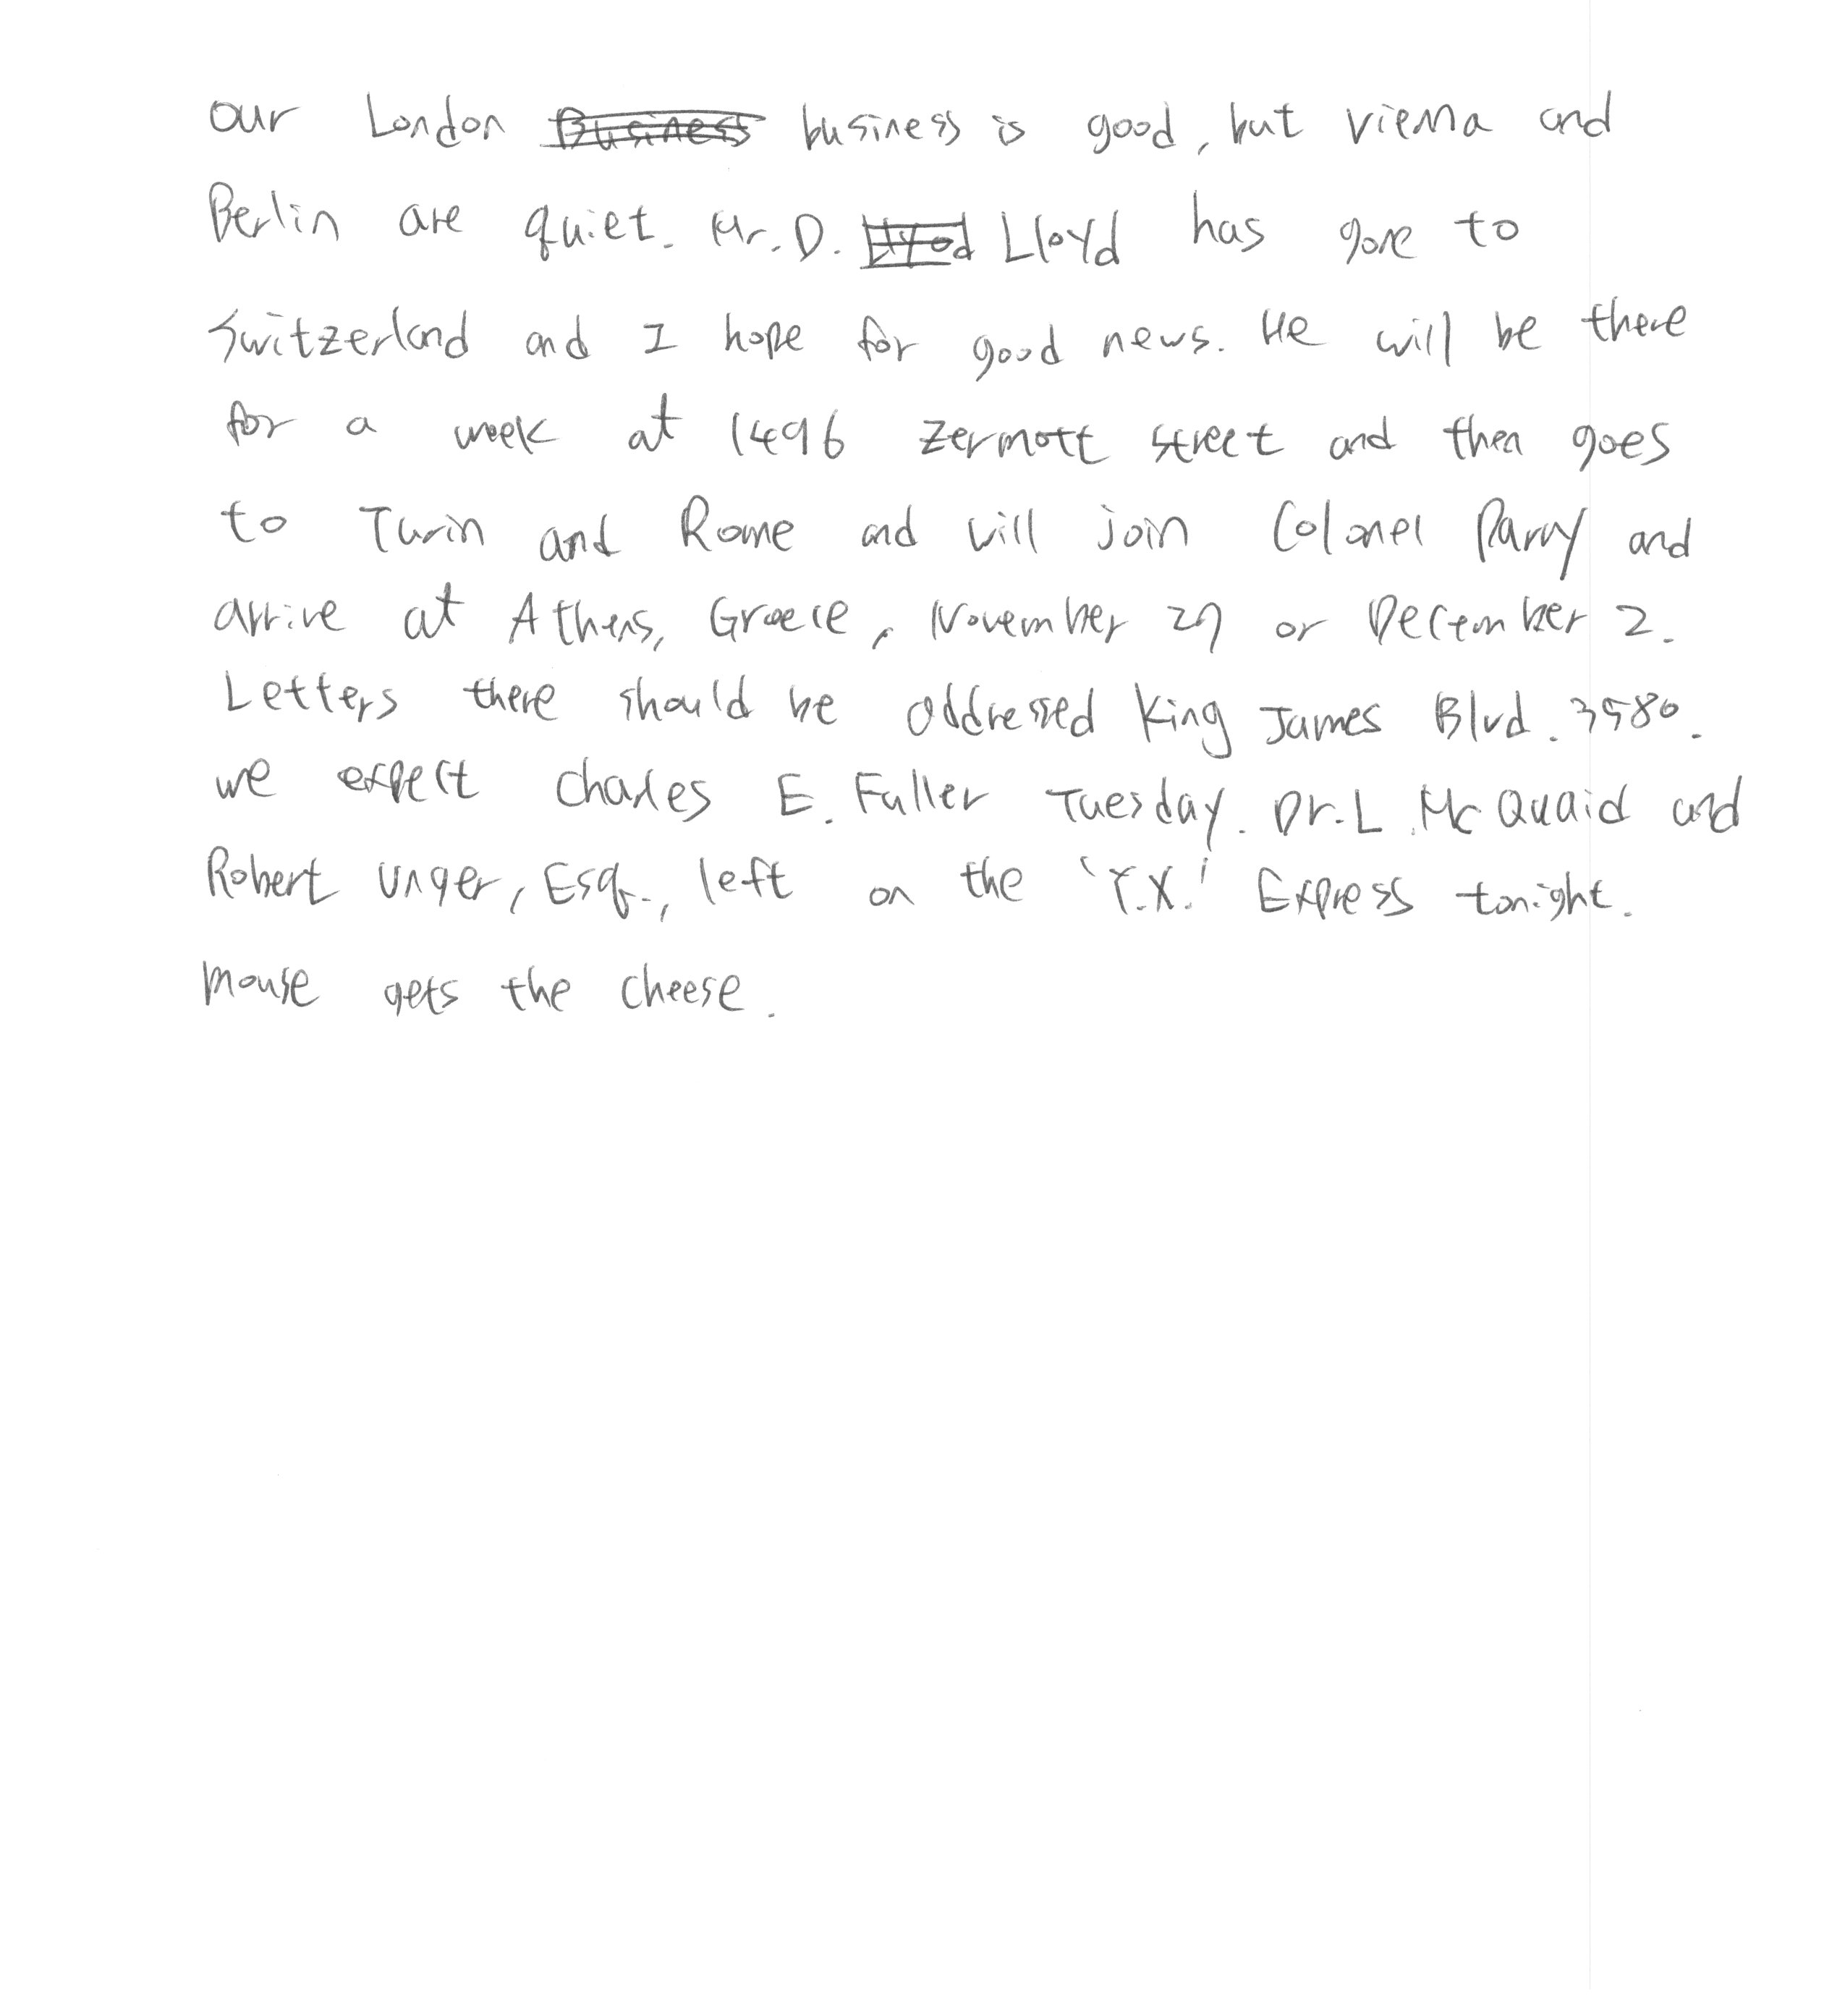 our London business is good, but vienna and
Berlin are quiet. Mr. D. Lloyd has gone to
Switzerland and I hope for good news. He will be there
for a week at 1496 Zermott street and then goes
to Turin and Rome and will join Colonel Parry and
arrive at Athens, Greece, November 27 or December 2.
Letters there should be addressed King James Blvd. 3580.
we expect Charles E. Fuller Tuesday. Dr. L. McQuaid and
Robert Unger, Esq., left on the 'Y.X.' Express tonight.
Mouse gets the cheese.